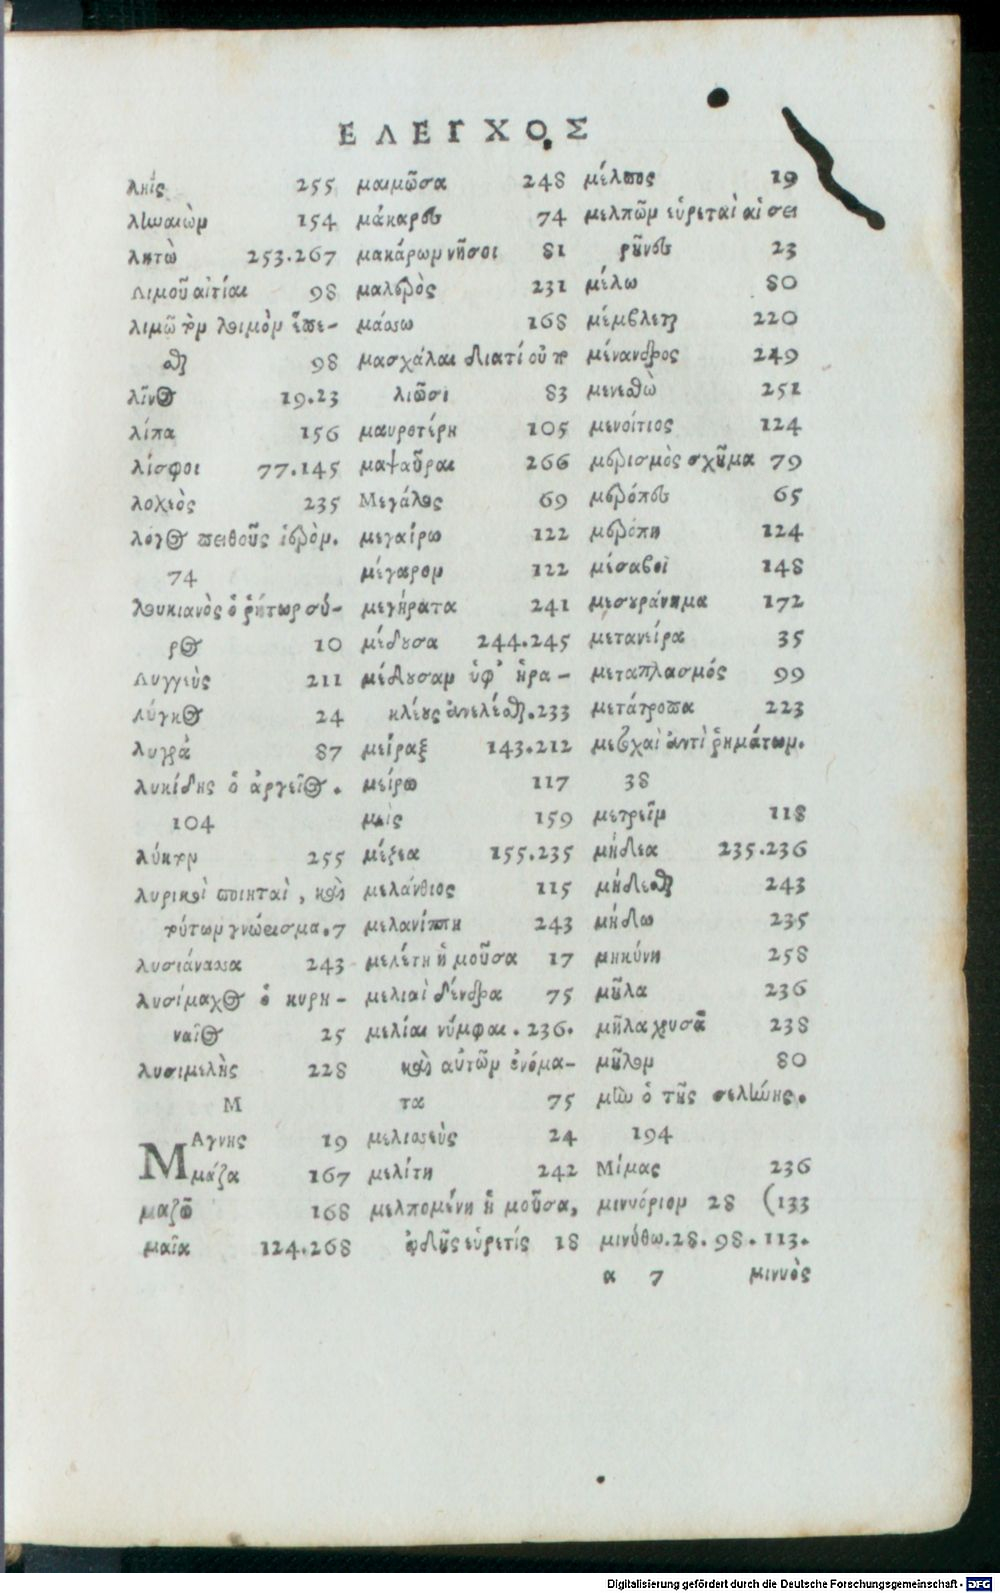 ΕΛΕΓΧΟΣ
ληΐς 255
ληναιὼν 154
λητὼ 253.267
Λιμοῦ αἰτίαι 98
λιμῶ τὸν λοιμὸν ἕπε-
σθαι 98
λῖνος 19.23
λίπα 156
λίσφοι 77.145
λοχεὸς 235
λόγος πειθοῦς ἱδρὸν.
74
λουκιανὸς ὁ ῥήτωρ σύ-
ρος 10
Λυγγεὺς 211
λύγκος 24
λυγρά 87
λυκίδης ὁ ἀργεῖος.
104
λύκτον 255
λυρικοὶ ποιηταὶ, καὶ
τούτων γνώρισμα.7
λυσιάνασσα 243
λυσίμαχος ὁ κυρη-
ναῖος 25
λυσιμελὴς 228
Μ
ΜΑγνης 19
μάζα 167
μαζῶ 168
μαῖα 124.268
μαιμῶσα 248
μάκαρες 74
μακάρων νῆσοι 81
μαλερὸς 231
μάσσω 168
μασχάλαι διατί οὐ πα
λιῶσι 83
μαυροτέρη 105
μαψαῦραι 266
Μεγάλως 69
μεγαίρω 122
μέγαρον 122
μεγήρατα 241
μέδουσα 244.245
μέδουσαν ὑφ' ἡρα-
κλέους ἀνελέσθαι.233
μείραξ 143.212
μείρω 117
μεὶς 159
μέζεα 155.235
μελάνθιος 115
μελανίππη 243
μελέτη ἡ μοῦσα 17
μελιαὶ δένδρα 75
μελίαι νύμφαι. 236.
καὶ αὐτῶν ὀνόμα-
τα 75
μελισσεὺς 24
μελίτη 242
μελπομένη ἡ μοῦσα,
ᾠδῆς εὑρετίς 18
μέλπος 19
μελπῶν εὑρεταὶ αἱ σει
ρῆνες 23
μέλω 80
μέμβλεται 220
μένανδρος 249
μενεσθὼ 251
μενοίτιος 124
μερισμὸς σχῆμα 79
μέροπες 65
μερόπη 124
μέσαβοϊ 148
μεσουράνημα 172
μετανείρα 35
μεταπλασμός 99
μετάτροπα 223
μετοχαὶ ἀντὶ ῥημάτων.
38
μετρεῖν 118
μήδεα 235.236
μήδεσθαι 243
μήδω 235
μηκύνη 258
μῆλα 236
μῆλα χρυσᾶ 238
μῆλον 80
μὴν ὁ τῆς σελήνης.
194
Μίμας 236
μινυόριον 28 (133
μινύθω.28.98.113.
α 7 μινυὸς
Digitalisierung gefördert durch die Deutsche Forschungsgemeinschaft - DFG